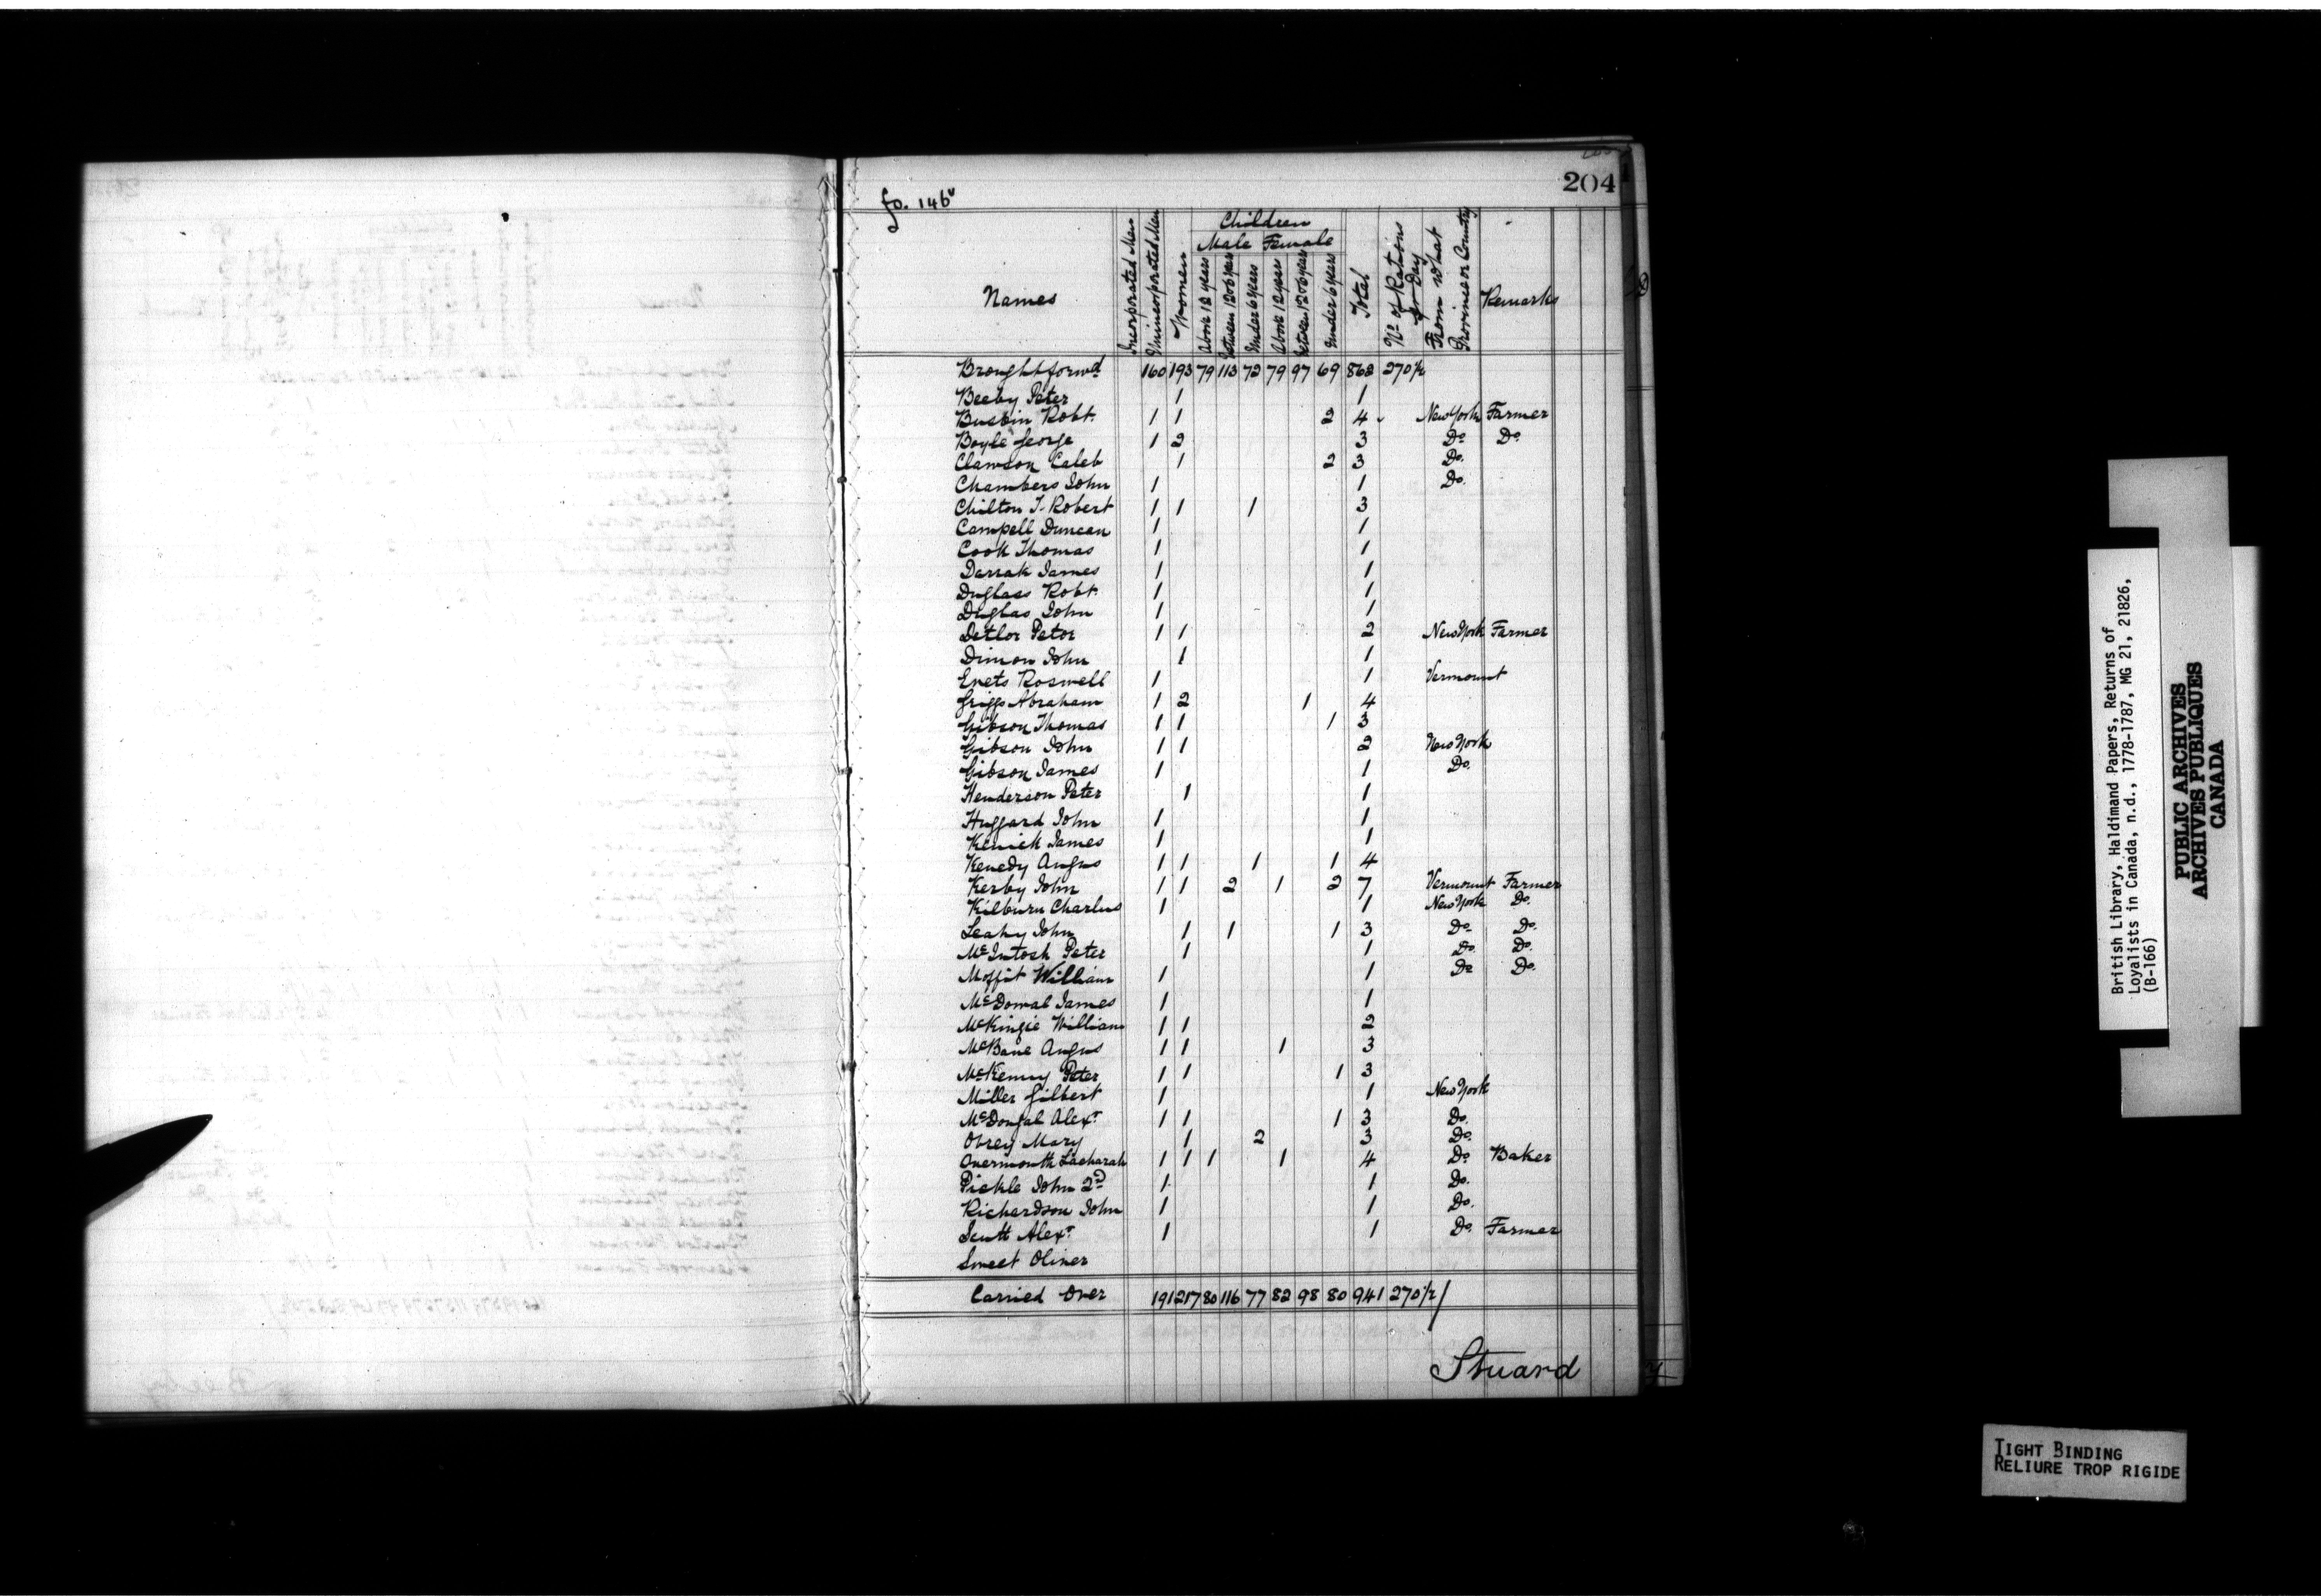 204
fo. 146v
Names
Incorporated Men
Unincorporated Men
Women
Children
Male Female
Above 12 years
Between 12 & 6 years
Under 6 years
Above 12 years
Between 12 & 6 years
Under 6 years
Total
No. of Rations pr Day
From What Province or Country
Remarks
Brought forwd 160 193 79 113 72 79 97 69 862 270 1/2
Beeby Peter 1 1
Buskin Robt. 1 1 2 4 New York Farmer
Boyle George 1 2 3 Do Do.
Clawson Caleb 1 2 3 Do.
Chambers John 1 1 Do.
Chilton T. Robert 1 1 1 3
Campell Duncan 1 1
Cook Thomas 1 1
Darrak James 1 1
Duglass Robt. 1 1
Duglas John 1 1
Detlor Petor 1 1 2 New York Farmer
Dimon John 1 1
Enets Roswell 1 1 Vermount
Griggs Abraham 1 2 1 4
Gibson Thomas 1 1 1 3
Gibson John 1 1 2 New York
Gibson James 1 1 Do.
Henderson Peter 1 1
Huggard John 1 1
Kenick James 1 1
Kenedy Angus 1 1 1 1 4
Kerby John 1 1 2 1 2 7 Vermount Farmer
Kilburn Charlus 1 1 New York Do.
Leahy John 1 1 1 3 Do. Do.
McIntosh Peter 1 1 Do. Do.
Moffit William 1 1 Do Do.
McDowal James 1 1
McKinzie William 1 1 2
McBane Angus 1 1 1 3
McKenny Peter 1 1 1 3
Miller Gilbert 1 1 New York
McDougal Alexr 1 1 1 3 Do.
Obrey Mary 1 2 3 Do.
Overmouth Zacharah 1 1 1 1 4 Do Baker
Pickle John 2d 1 1 Do.
Richardson John 1 1 Do.
Scutt Alexr 1 1 Do. Farmer
Sweet Oliver
Carried Over 191 217 80 116 77 82 98 80 941 270 1/2
Stuard
British Library, Haldimand Papers, Returns of
Loyalists in Canada, n.d., 1778-1787, MG 21, 21826,
(B-166)
PUBLIC ARCHIVES
ARCHIVES PUBLIQUES
CANADA
TIGHT BINDING
RELIURE TROP RIGIDE